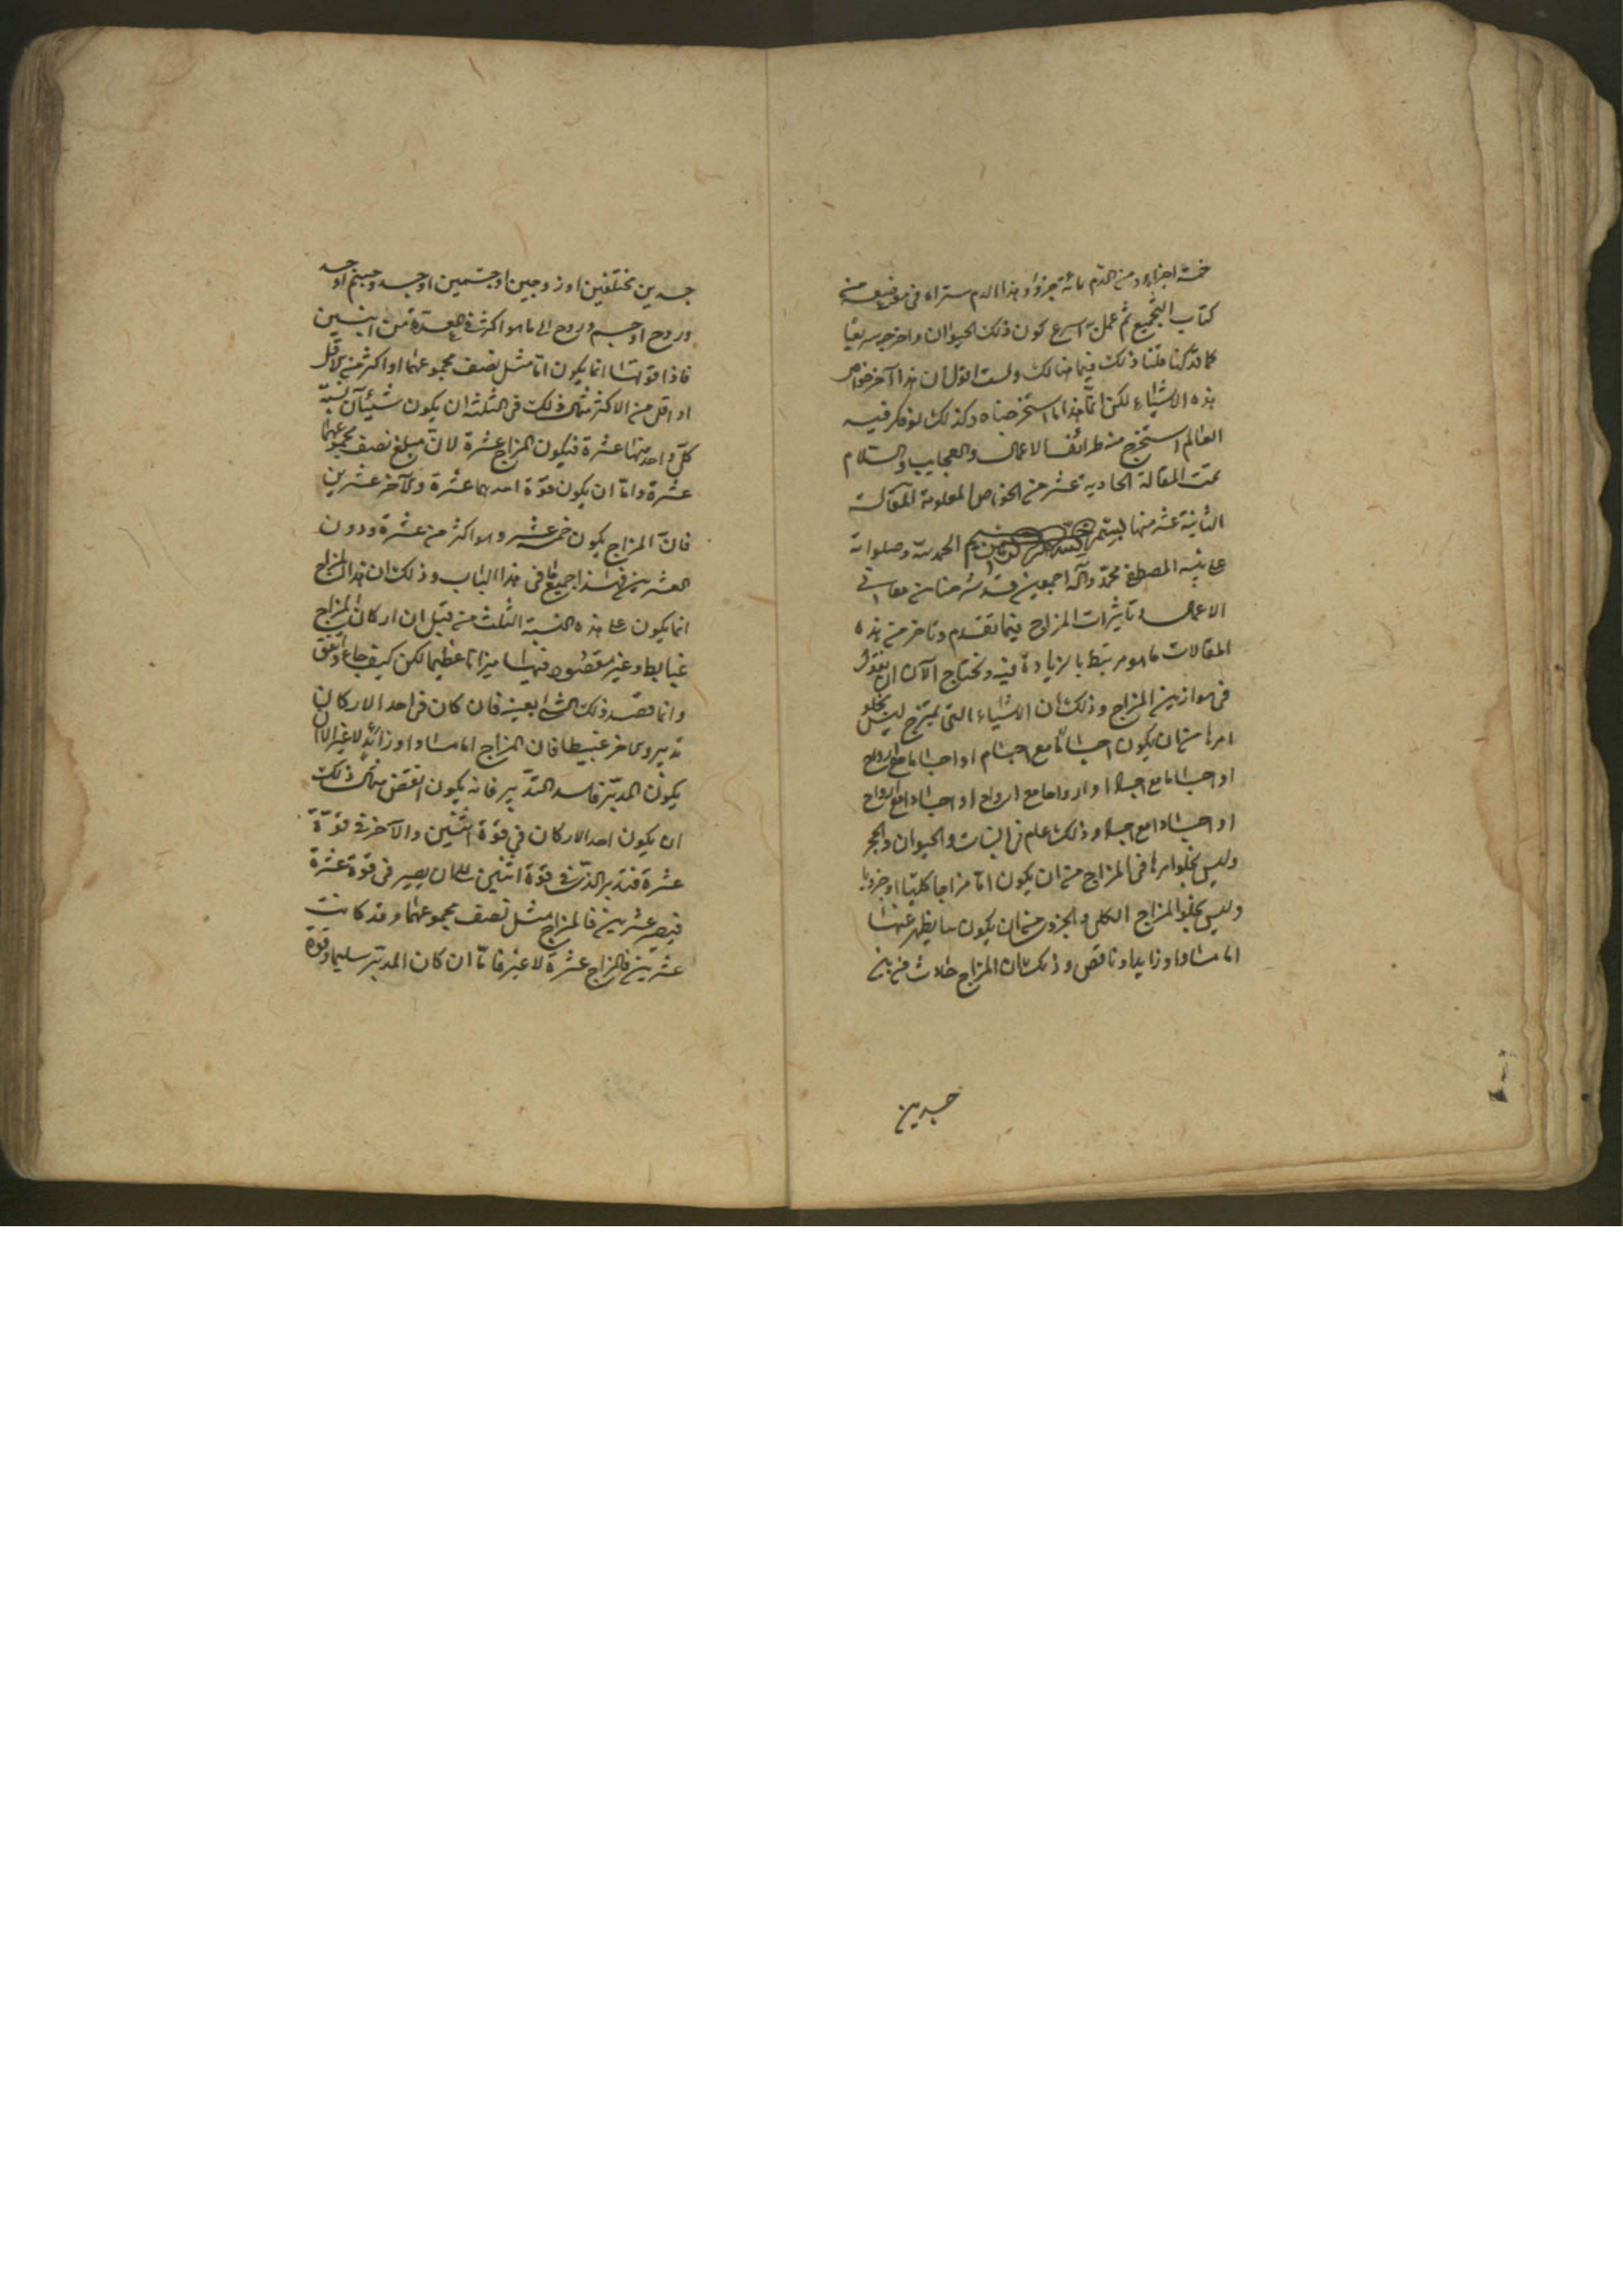 خمسة اجزاء ومن الدم مائة جزؤ وهذا الدم ستراه في موضعه من
كتاب التجميع ثم عمل به اسرع كون ذلك الحيوان واخرجه سريعا
كما قد كنا قلنا ذلك فيما هنالك ولست اقول ان هذا آخر خواص
هذه الاشياء لكن انما هذا ما استخرجناه وكذلك لو فكر فيه
العالم استخرج منه طرائف الاعمال والعجايب والسلام
تمت المقالة الحادية عشر من الخواص المعلومة المقالة
الثانية عشر منها بسم الحمد لله وصلواته
على نبيه المصطفى محمد وآله اجمعين قد شرحنا من معاني
الاعمال وتاثيرات المزاج فيما تقدم وتاخر من هذه
المقالات ما هو مرتبط بالزيادة فيه ونحتاج الآن ان نقول
في موازين المزاج وذلك ان الاشياء التي تمتزج ليس يخلو
امرها من ان يكون اجساما مع اجسام او اجساما مع ارواح
او اجساما مع اجساد او ارواحا مع ارواح او اجسادا مع ارواح
او اجسادا مع اجساد وذلك عام في النبات والحيوان والحجر
وليس يخلو امرها في المزاج من ان يكون اما مزاجا كليا او جزويا
وليس يخلو المزاج الكلي والجزوي من ان يكون ما يظهر عنها
اما مساويا او زايدا او ناقص وذلك ان المزاج حادث من بين
جسدين
جسدين مختلفين او زوجين او جسمين او جسد وجسم او جسد
وروح او جسم وروح الى ما هو اكثر في العدة من اثنين
فاذا قوتها انما يكون اما مثل نصف مجموعهما او اكثر من الاقل
او اقل من الاكثر مثال ذلك في الثلثة ان يكون شيئان نسبة
كل واحد منهما عشرة فيكون المزاج عشرة لان مبلغ نصف مجموعهما
عشرة واما ان يكون قوة احدهما عشرة والآخر عشرين
فان المزاج يكون خمسة عشر وهو اكثر من عشرة ودون
العشرين فهذا جميع ما في هذا الباب وذلك ان هذا المزاج
انما يكون على هذه النسبة الثلث من قبل ان اركان المزاج
غيابط وغير مقصود فيها ميزانا عظيما لكن كيف جاء واتفق
وانما قصد ذلك الشئ بعينه فان كان في احد الاركان
تدبير والآخر غبيطا فان المزاج اما مساو او زائد لا غير الا ان
يكون المدبر فاسد التدبير فانه يكون انقص مثال ذلك
ان يكون احد الاركان في قوة اثنين والآخر في قوة
عشرة فتدبر الذي في قوة اثنين الى ان يصير في قوة عشرة
فيصير عشرين فالمزاج مثل نصف مجموعهما وقد كانت
عشرين فالمزاج عشرة لا غير فاما ان كان المدبر سليما وقوة